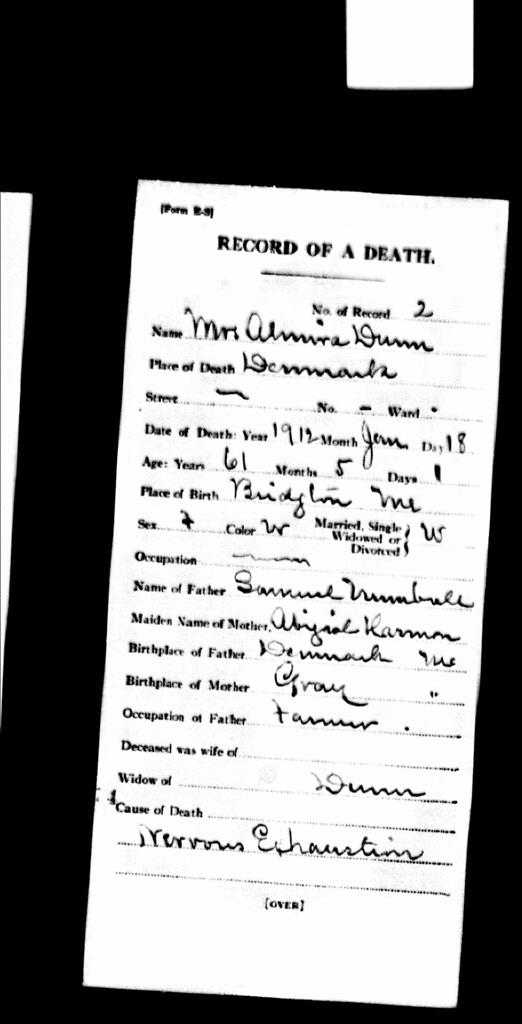 [Form R-9]
RECORD OF A DEATH.
No. of Record 2
Name Mrs Almira Dunn
Place of Death Denmark
Street — No. – Ward .
Date of Death: Year 1912 Month Jan. Day 18
Age: Years 61 Months 5 Days 1
Place of Birth Bridgton Me
Sex F Color W Married, Single Widowed or Divorced } W
Occupation —
Name of Father Samuel Trumbull
Maiden Name of Mother, Abigial Harmon
Birthplace of Father Denmark Me
Birthplace of Mother Gray "
Occupation of Father Farmer .
Deceased was wife of
Widow of Dunn
Cause of Death
Nervous Exhaustion
[OVER]